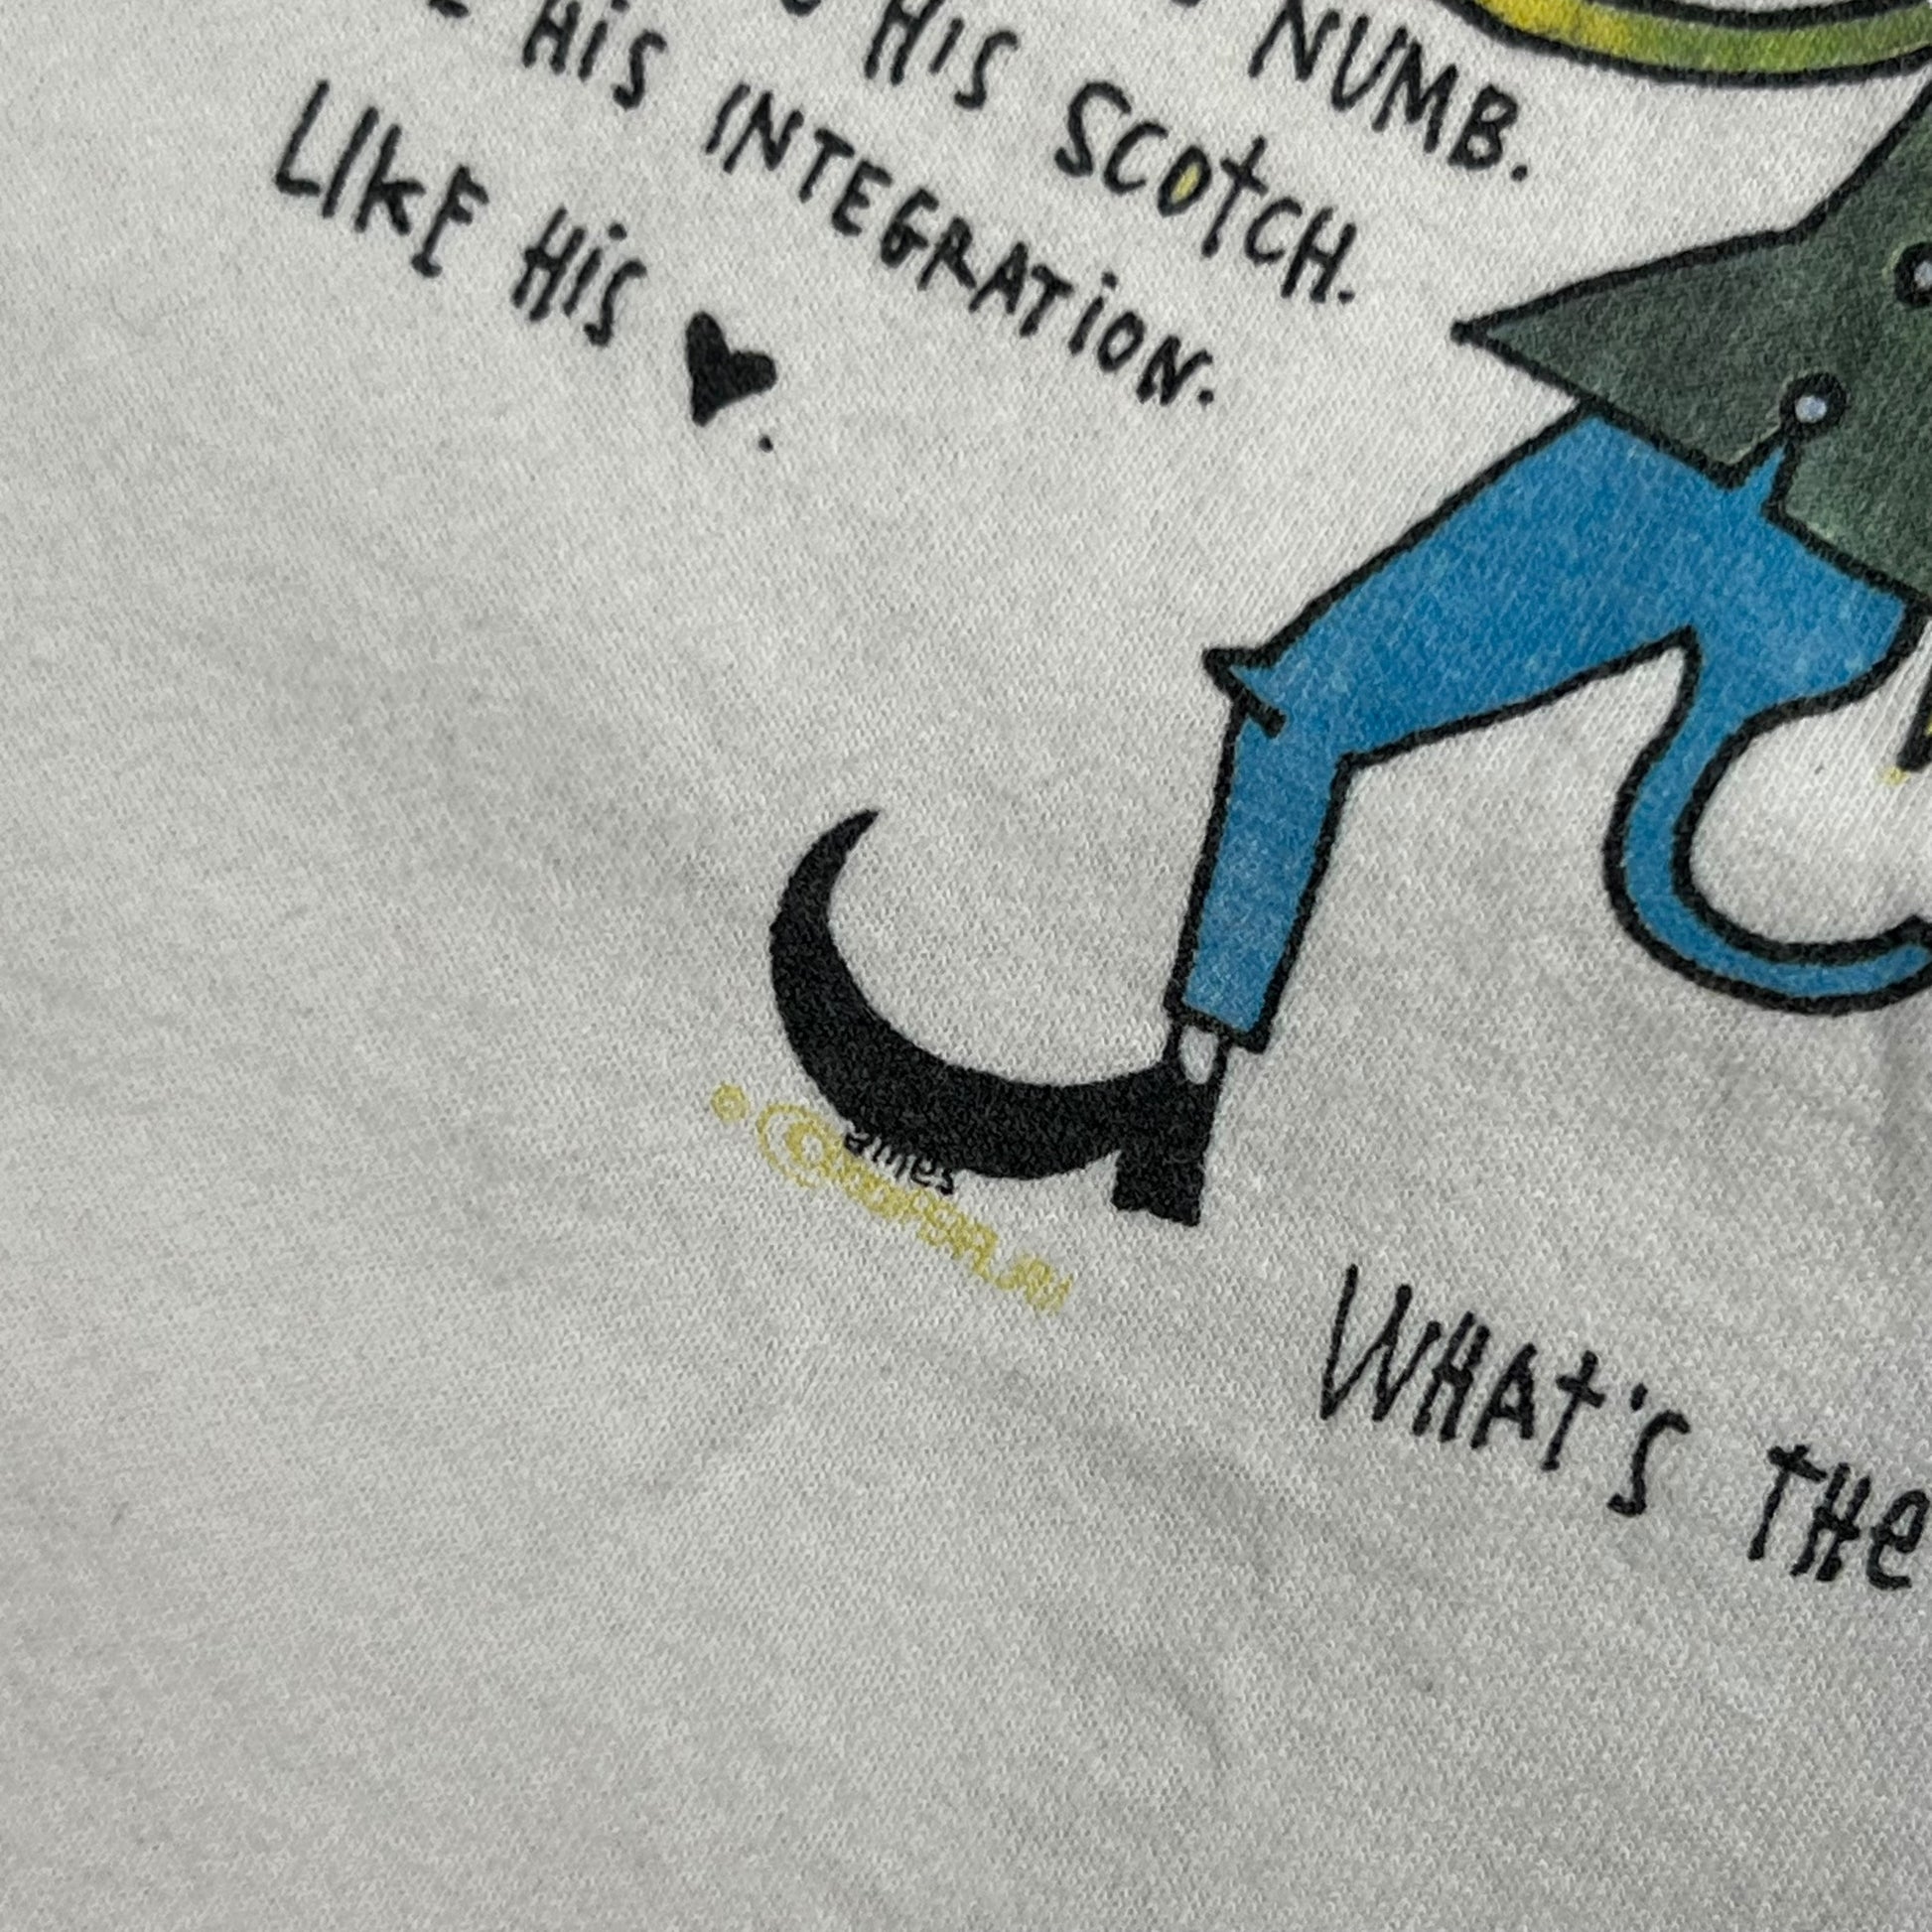 NUMB.
HIS SCOTCH.
HIS INTEGRATION.
LIKE HIS ♥.
©
ames
WHAT'S THE